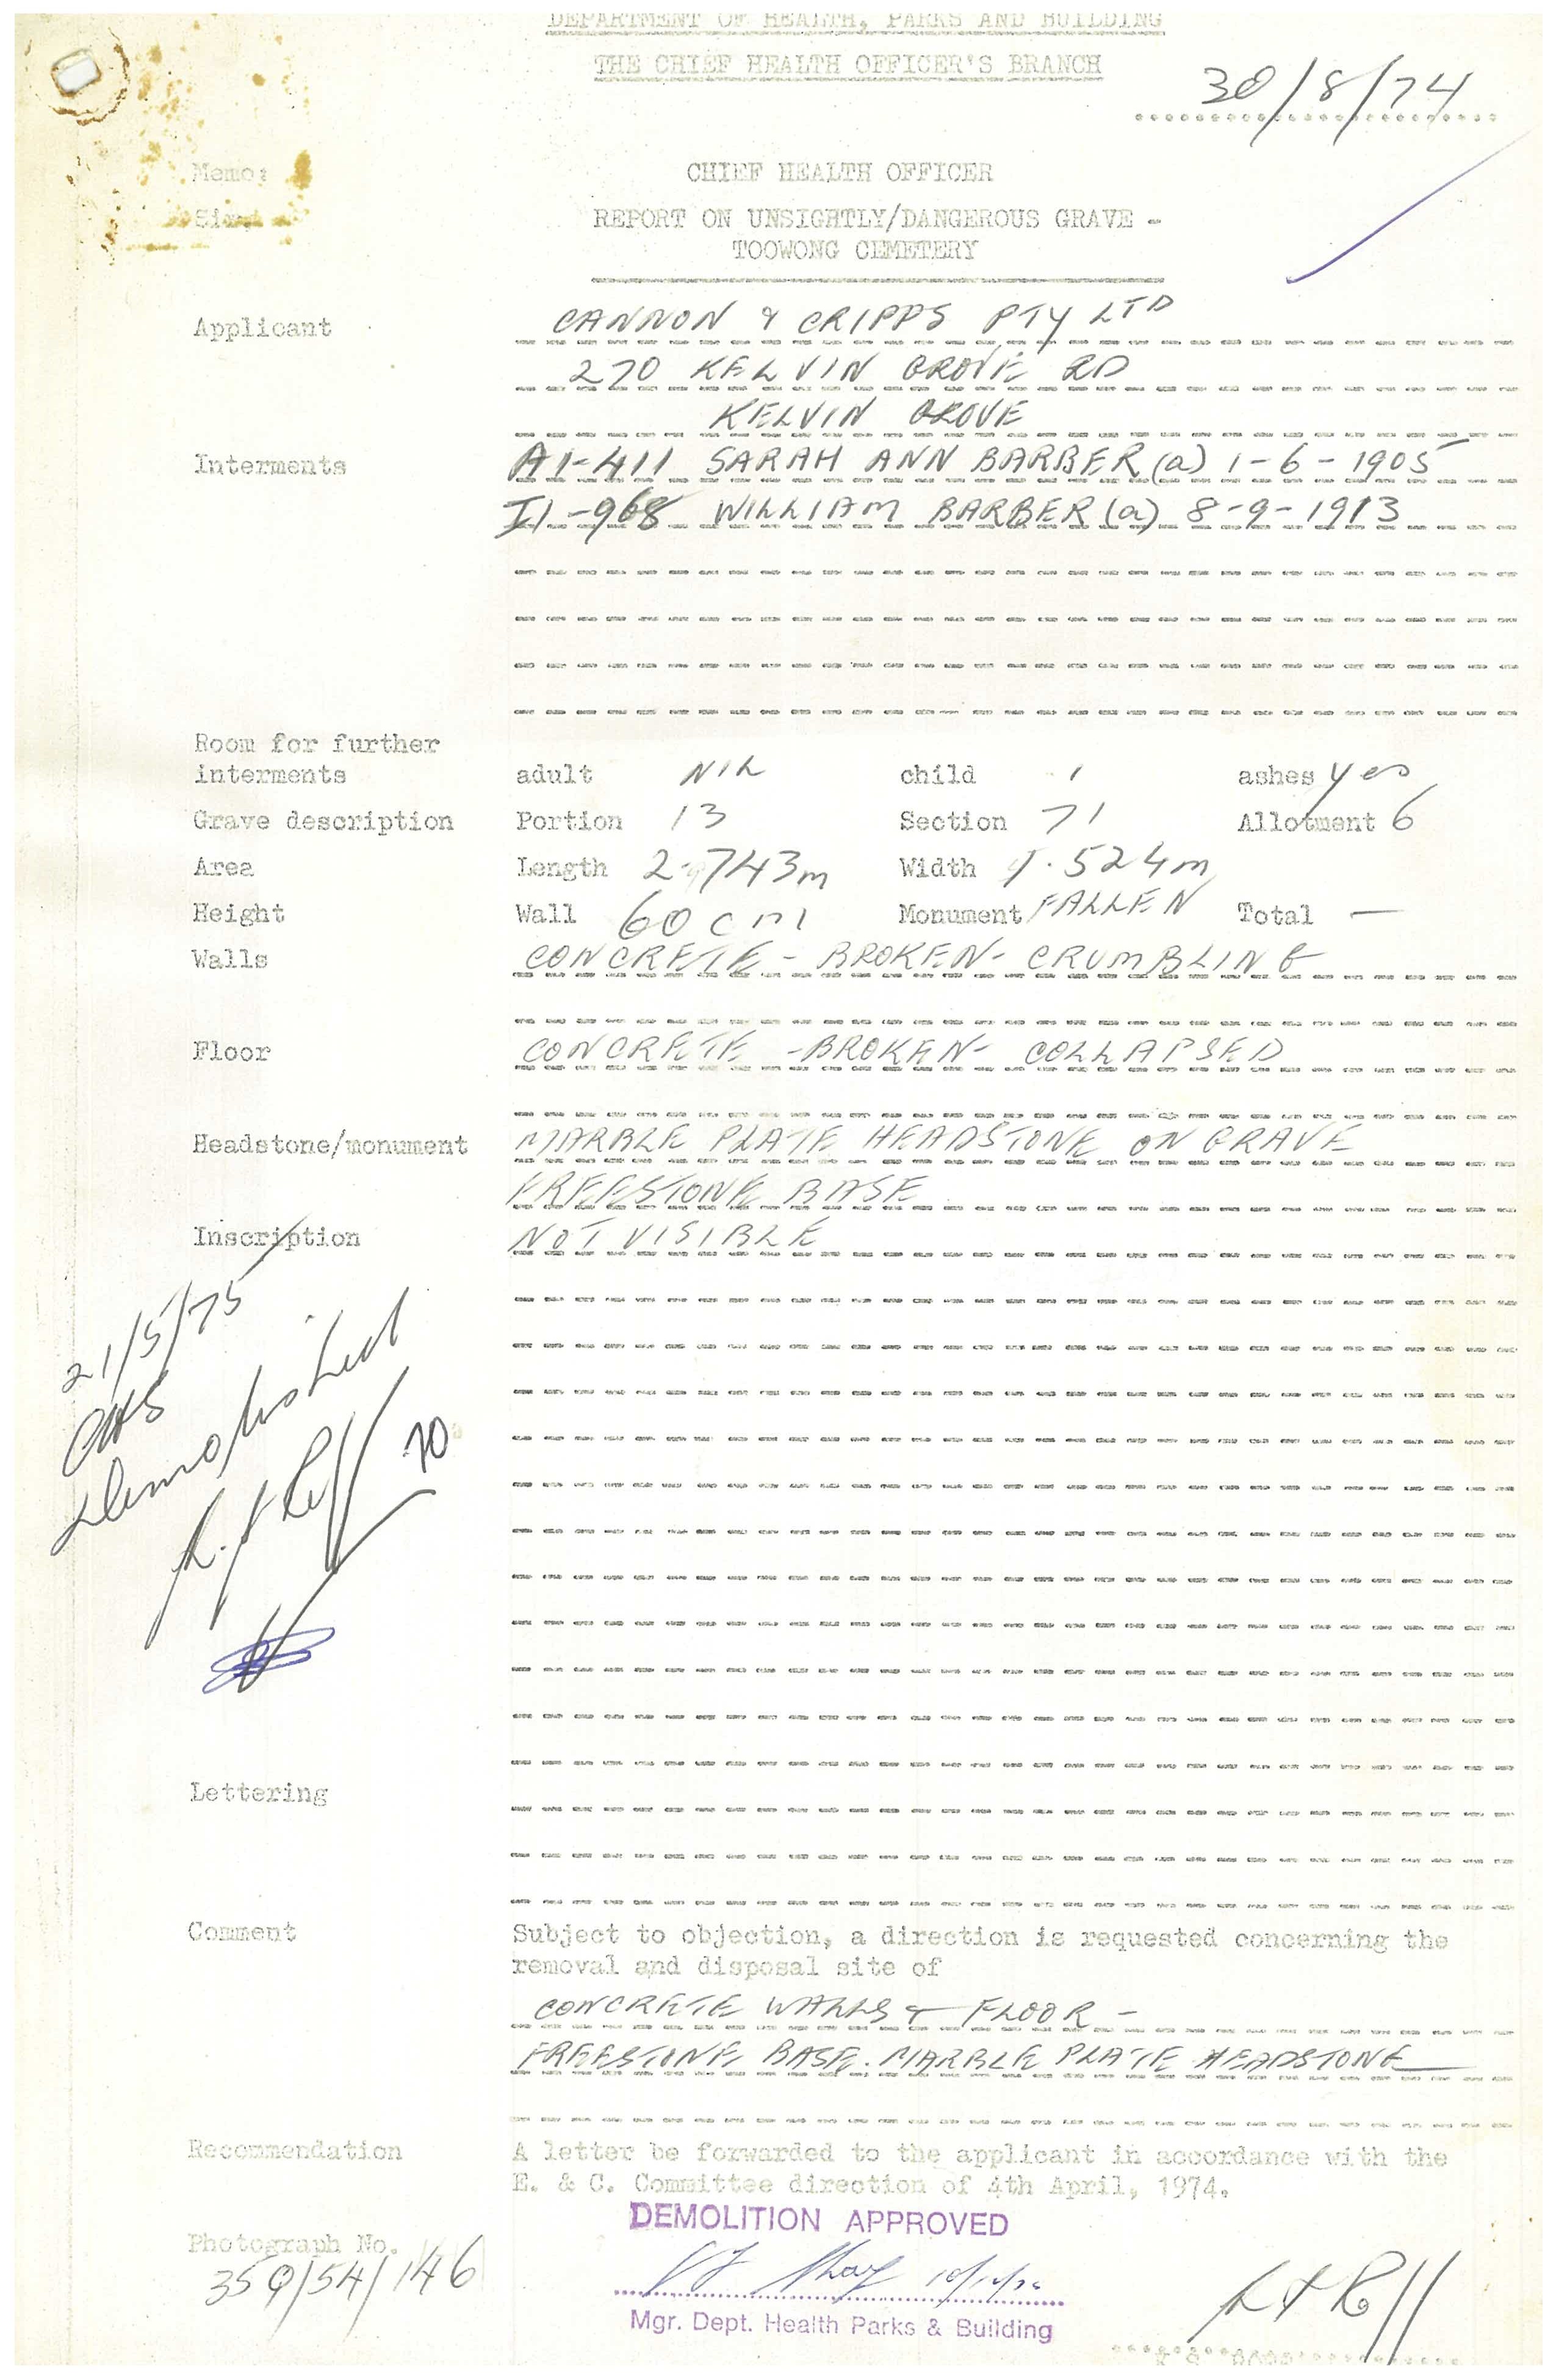 DEPARTMENT OF HEALTH, PARKS AND BUILDING
THE CHIEF HEALTH OFFICER'S BRANCH
30/8/74
Memo:
CHIEF HEALTH OFFICER
REPORT ON UNSIGHTLY/DANGEROUS GRAVE -
TOOWONG CEMETERY
Applicant CANNON & CRIPPS PTY LTD
270 KELVIN GROVE RD
KELVIN GROVE
Interments A1-411 SARAH ANN BARBER (a) 1-6-1905
I1-968 WILLIAM BARBER (a) 8-9-1913
Room for further
interments adult NIL child 1 ashes yes
Grave description Portion 13 Section 71 Allotment 6
Area Length 2.743m Width 1.524m
Height Wall 60 cm Monument FALLEN Total —
Walls CONCRETE - BROKEN - CRUMBLING
Floor CONCRETE - BROKEN - COLLAPSED
Headstone/monument MARBLE PLATE HEADSTONE ON GRAVE
FREESTONE BASE
Inscription NOT VISIBLE
21/5/75
demolished
Lettering
Comment Subject to objection, a direction is requested concerning the
removal and disposal site of
CONCRETE WALLS & FLOOR -
FREESTONE BASE. MARBLE PLATE HEADSTONE
Recommendation A letter be forwarded to the applicant in accordance with the
E. & C. Committee direction of 4th April, 1974.
DEMOLITION APPROVED
Photograph No.
359/54/146
Mgr. Dept. Health Parks & Building